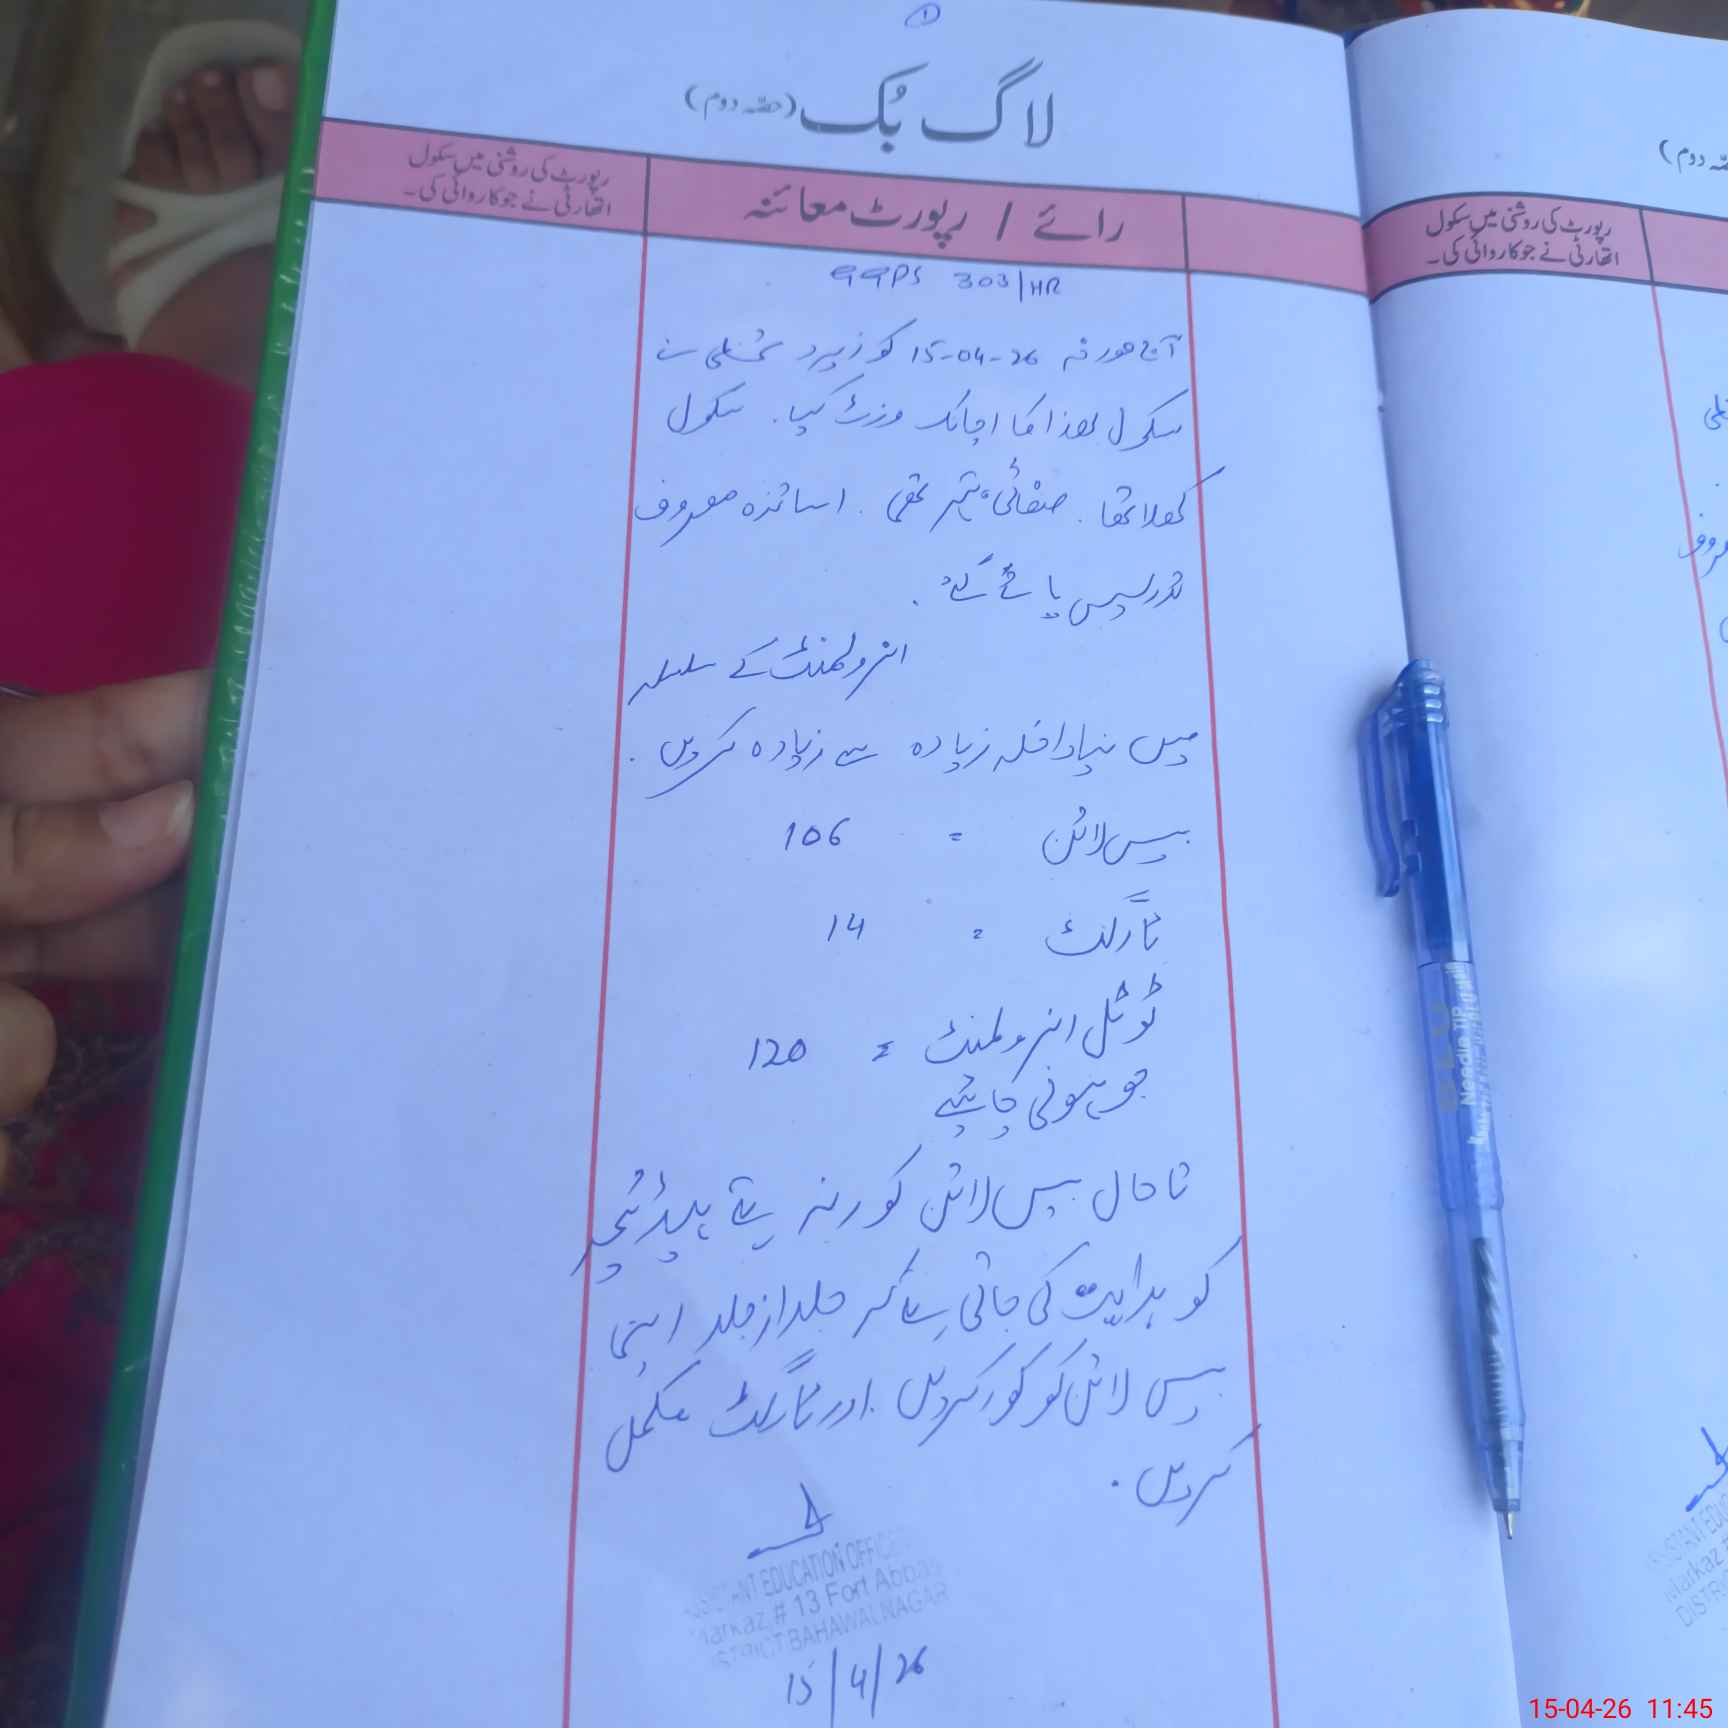 1
لاگ بُک (حصّہ دوم)
رائے / رپورٹ معائنہ
رپورٹ کی روشنی میں سکول
اتھارٹی نے جو کاروائی کی۔
GGPS 303/HR
آج مورخہ 26-04-15 کو زیر دستخطی نے
سکول ھذا کا اچانک وزٹ کیا۔ سکول
کھلا تھا۔ صفائی بہتر تھی۔ اساتذہ مصروف
تدریس پائے گئے۔
انرولمنٹ کے سلسلہ
میں نیا داخلہ زیادہ سے زیادہ کریں۔
بیس لائن = 106
ٹارگٹ = 14
ٹوٹل انرولمنٹ = 120
جو ہونی چاہئیے
تاحال بیس لائن کور نہ ہے ہیڈ ٹیچر
کو ہدایت کی جاتی ہے کہ جلد از جلد اپنی
بیس لائن کو کور کریں اور ٹارگٹ مکمل
کریں۔
ASSISTANT EDUCATION OFFICER
Markaz # 13 Fort Abbas
DISTRICT BAHAWALNAGAR
15/4/26
حصّہ دوم)
رپورٹ کی روشنی میں سکول
اتھارٹی نے جو کاروائی کی۔
Needle Tip
15-04-26 11:45